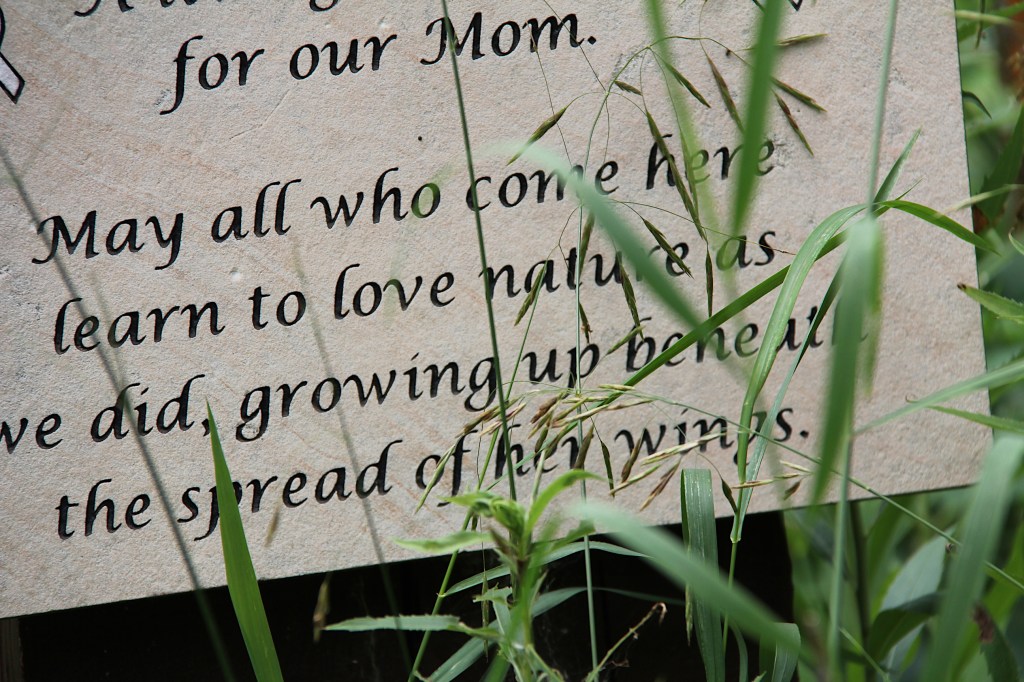 for our Mom.
May all who come here
learn to love nature as
we did, growing up beneath
the spread of her wings.